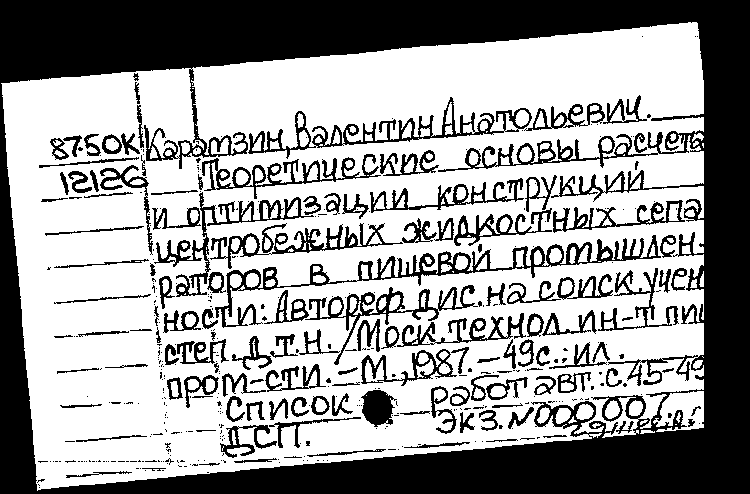 87-50К Карамзин, Валентин Анатольевич.
12126 Теоретические основы расчета
и оптимизации конструкций
центробежных жидкостных сепа
раторов в пищевой промышлен-
ности: Автореф. дис. на соиск. учен
степ. д.т.н. / Моск. технол. ин-т пи
пром-сти. – М., 1987. – 49с.: ил.
Список работ авт.: с. 45-49
ДСП. Экз. N000007